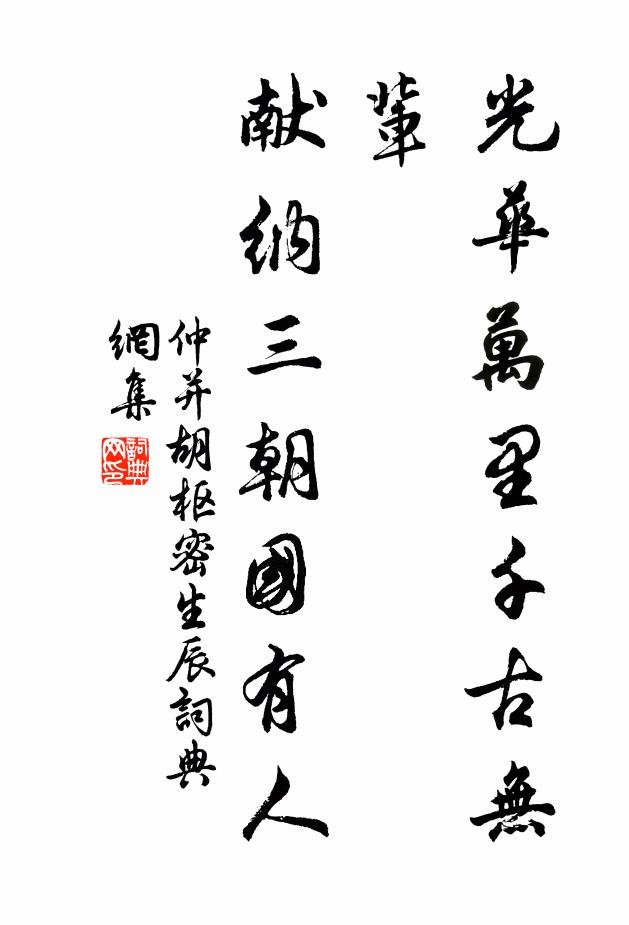 光華萬里千古無
輩
献納三朝國有人
仲并胡枢密生辰詞典
網集
詞典
网印